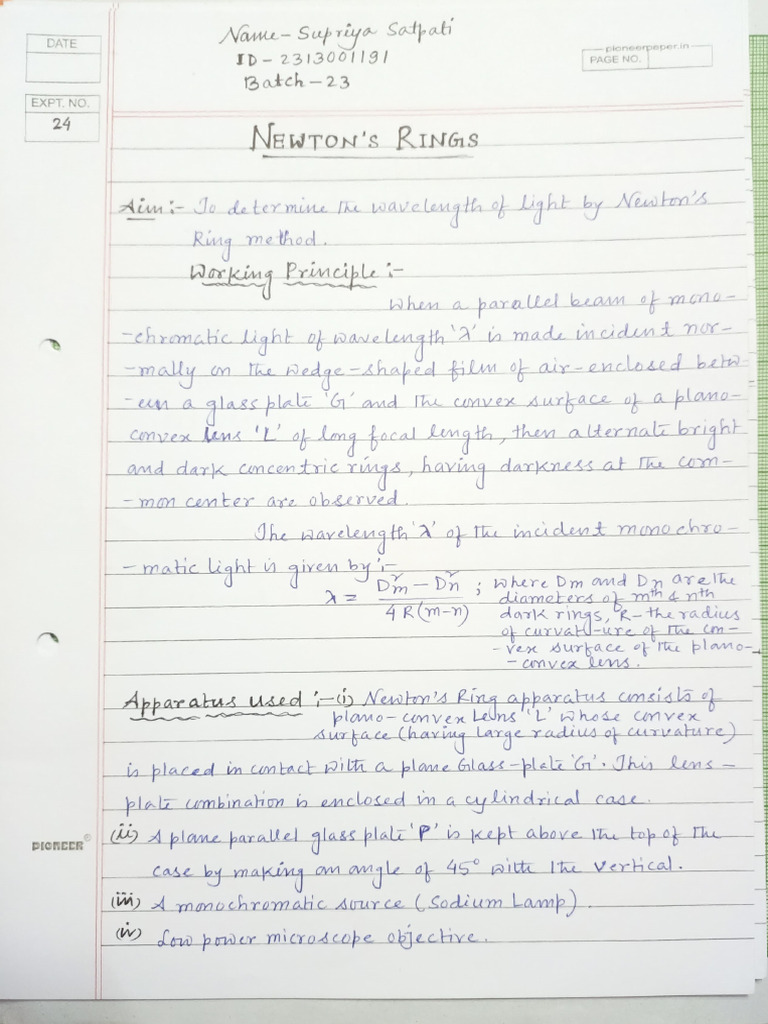 Name - Supriya Satpati
DATE
ID - 2313001191
pioneerpaper.in
PAGE NO.
Batch - 23
EXPT. NO.
24
NEWTON'S RINGS
Aim :- To determine the wavelength of light by Newton's
Ring method.
Working Principle :-
When a parallel beam of mono-
-chromatic light of wavelength 'λ' is made incident nor-
-mally on the wedge-shaped film of air-enclosed betw-
-een a glass plate 'G' and the convex surface of a plano-
convex lens 'L' of long focal length, then alternate bright
and dark concentric rings, having darkness at the com-
-mon center are observed.
The wavelength 'λ' of the incident monochro-
-matic light is given by :-
λ = (Dm² - Dn²) / 4R(m-n) ; where Dm and Dn are the
diameters of mth & nth
dark rings, R - the radius
of curvat-ure of the con-
-vex surface of the plano-
-convex lens.
Apparatus used :- (i) Newton's Ring apparatus consists of
plano-convex Lens 'L' whose convex
surface (having large radius of curvature)
is placed in contact with a plane Glass-plate 'G'. This lens-
plate combination is enclosed in a cylindrical case.
(ii) A plane parallel glass plate 'P' is kept above the top of the
case by making an angle of 45° with the vertical.
PIONEER®
(iii) A monochromatic source (Sodium Lamp).
(iv) Low power microscope objective.